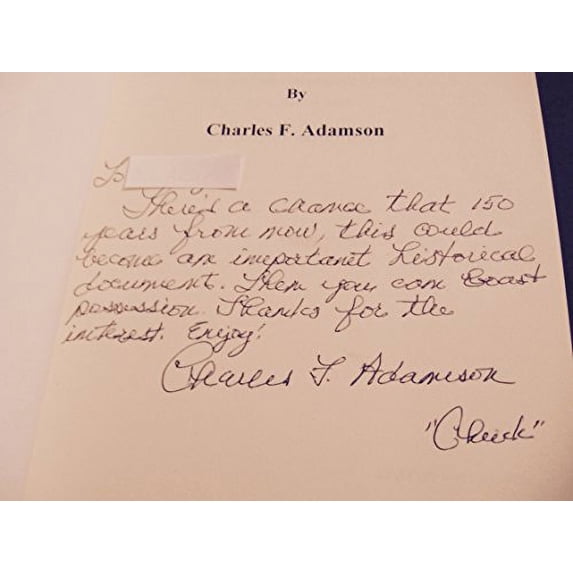 By
Charles F. Adamson
To
There's a chance that 150
years from now, this could
become an important historical
document. Then you can boast
possession. Thanks for the
interest. Enjoy!
Charles F. Adamson
"Chuck"